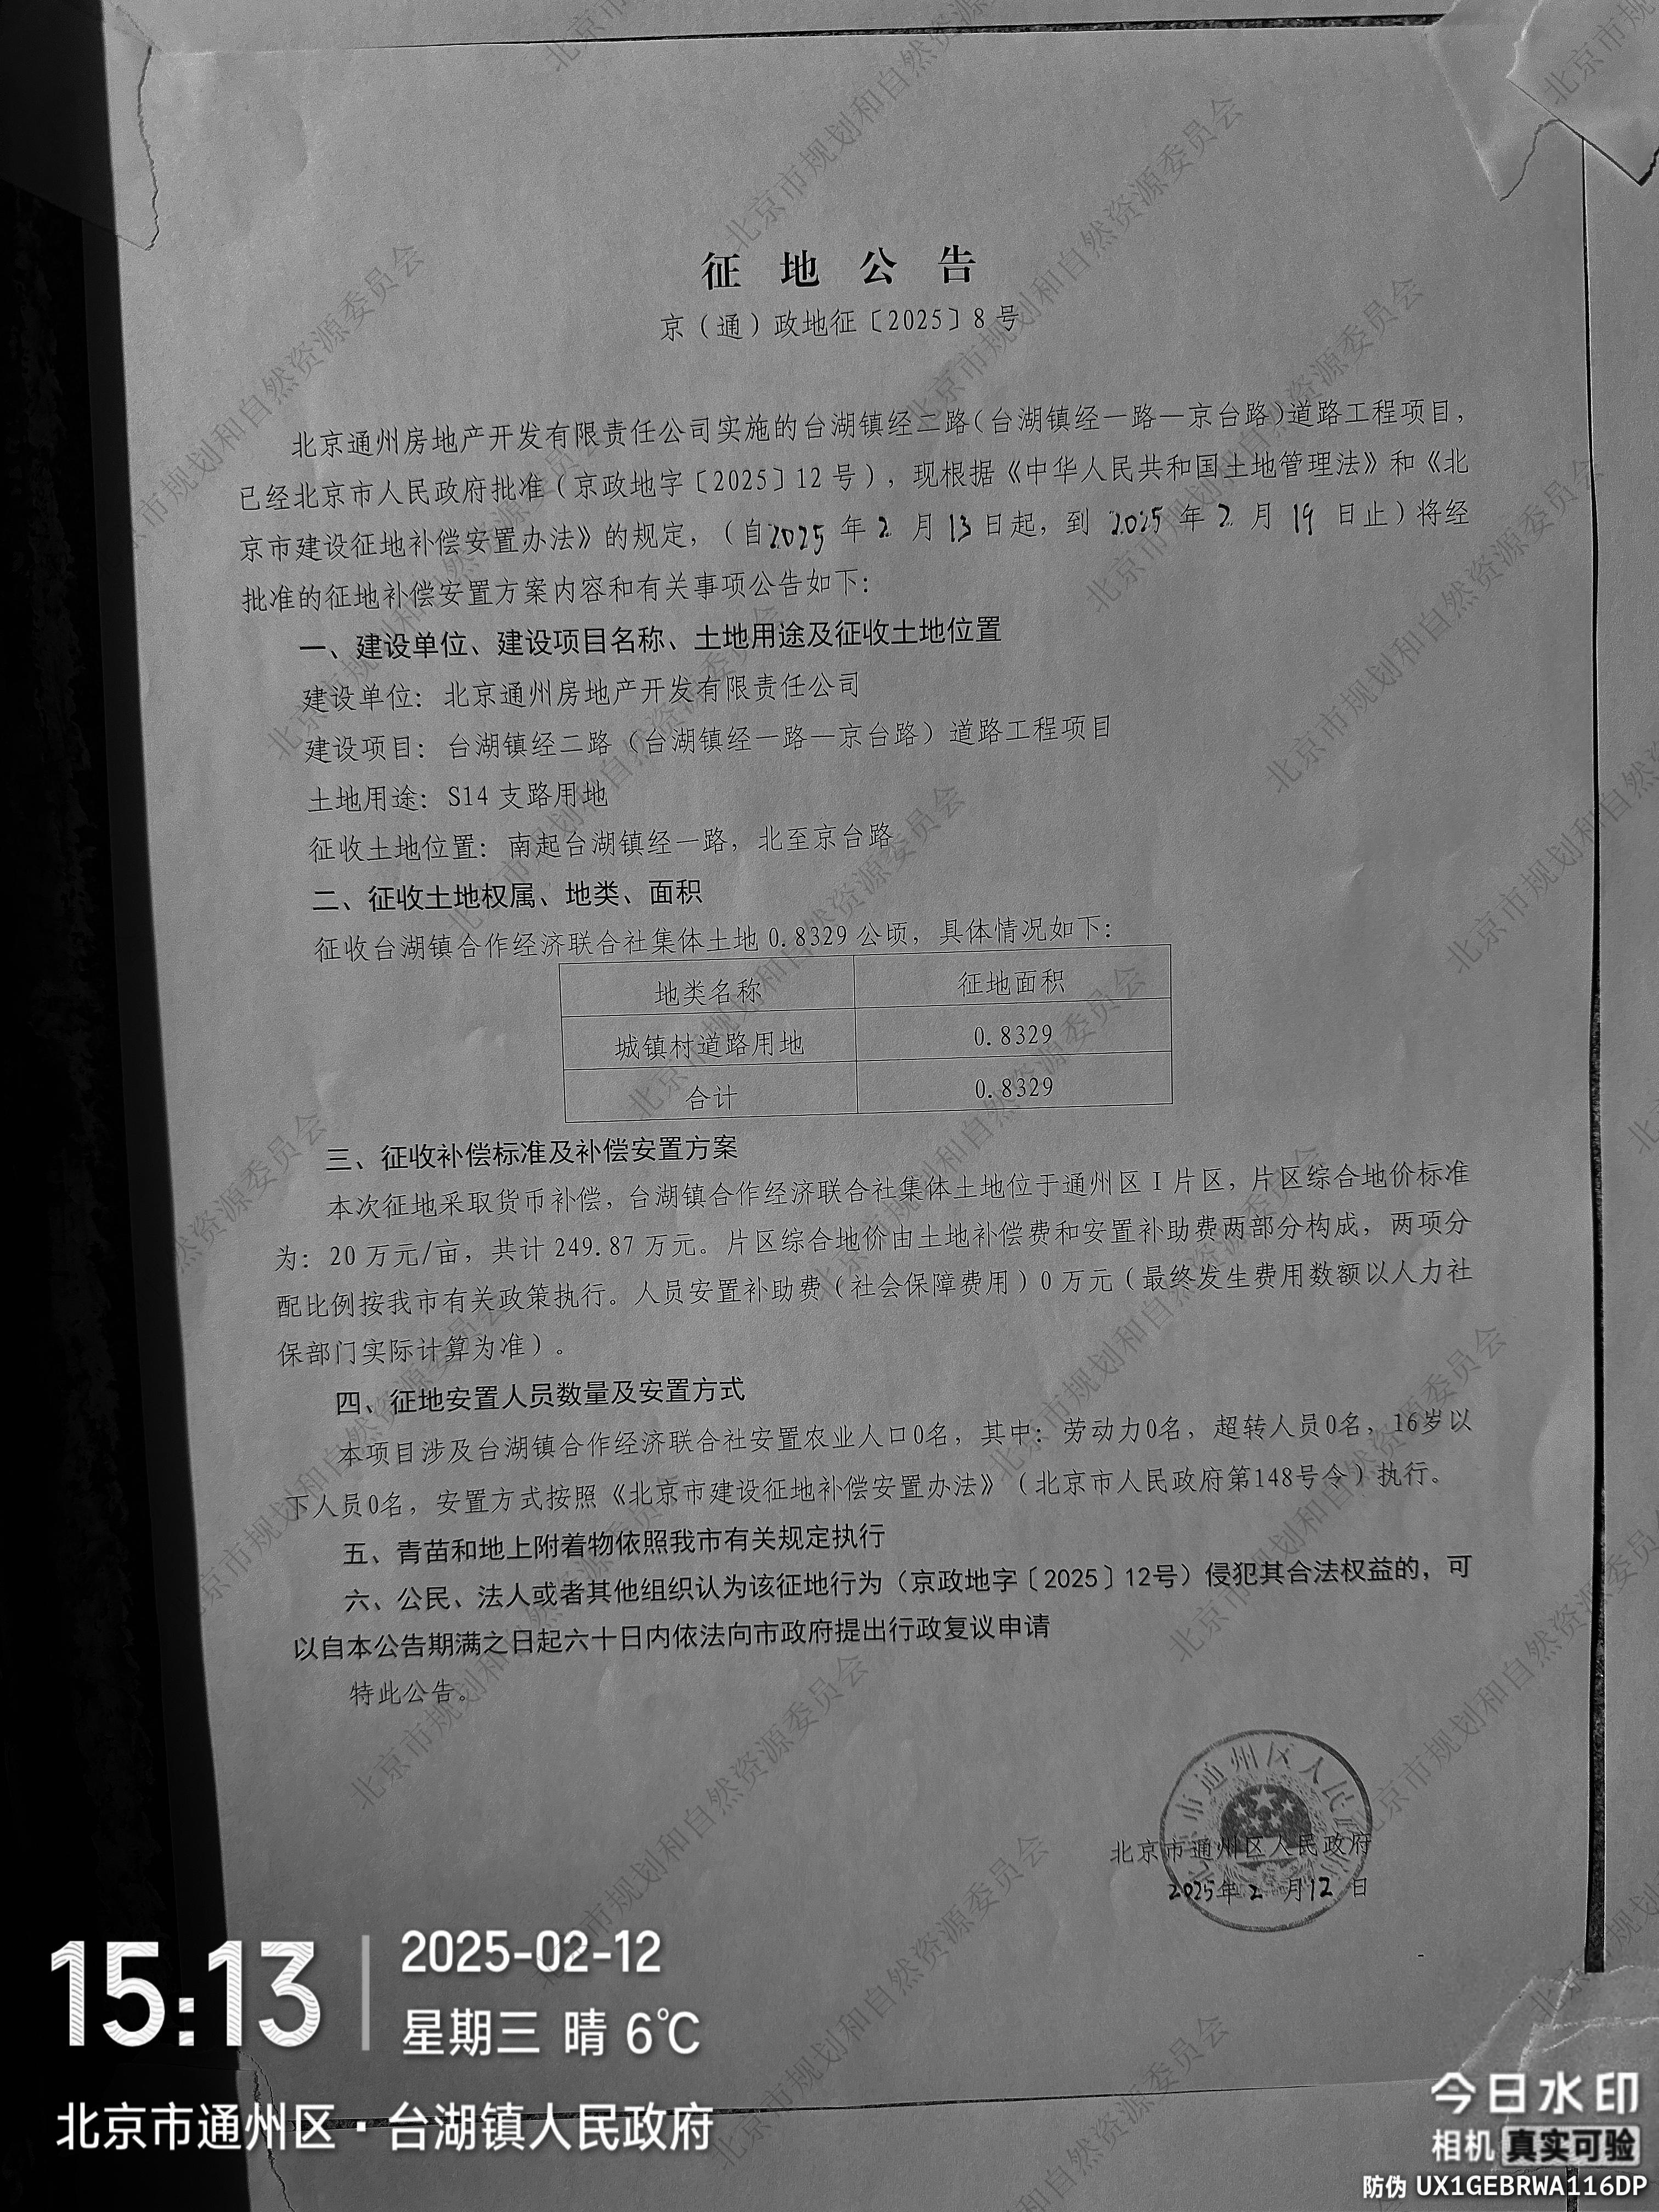 征地公告
京（通）政地征〔2025〕8号
北京通州房地产开发有限责任公司实施的台湖镇经二路（台湖镇经一路—京台路）道路工程项目，
已经北京市人民政府批准（京政地字〔2025〕12号），现根据《中华人民共和国土地管理法》和《北
京市建设征地补偿安置办法》的规定，（自2025年2月13日起，到2025年2月19日止）将经
批准的征地补偿安置方案内容和有关事项公告如下：
一、建设单位、建设项目名称、土地用途及征收土地位置
建设单位：北京通州房地产开发有限责任公司
建设项目：台湖镇经二路（台湖镇经一路—京台路）道路工程项目
土地用途：S14支路用地
征收土地位置：南起台湖镇经一路，北至京台路
二、征收土地权属、地类、面积
征收台湖镇合作经济联合社集体土地0.8329公顷，具体情况如下：
地类名称 征地面积
城镇村道路用地 0.8329
合计 0.8329
三、征收补偿标准及补偿安置方案
本次征地采取货币补偿，台湖镇合作经济联合社集体土地位于通州区Ⅰ片区，片区综合地价标准
为：20万元/亩，共计249.87万元。片区综合地价由土地补偿费和安置补助费两部分构成，两项分
配比例按我市有关政策执行。人员安置补助费（社会保障费用）0万元（最终发生费用数额以人力社
保部门实际计算为准）。
四、征地安置人员数量及安置方式
本项目涉及台湖镇合作经济联合社安置农业人口0名，其中：劳动力0名，超转人员0名，16岁以
下人员0名，安置方式按照《北京市建设征地补偿安置办法》（北京市人民政府第148号令）执行。
五、青苗和地上附着物依照我市有关规定执行
六、公民、法人或者其他组织认为该征地行为（京政地字〔2025〕12号）侵犯其合法权益的，可
以自本公告期满之日起六十日内依法向市政府提出行政复议申请
特此公告。
北京市通州区人民政府
2025年2月12日
15:13
2025-02-12
星期三 晴 6℃
北京市通州区·台湖镇人民政府
今日水印
相机 真实可验
防伪 UX1GEBRWA116DP